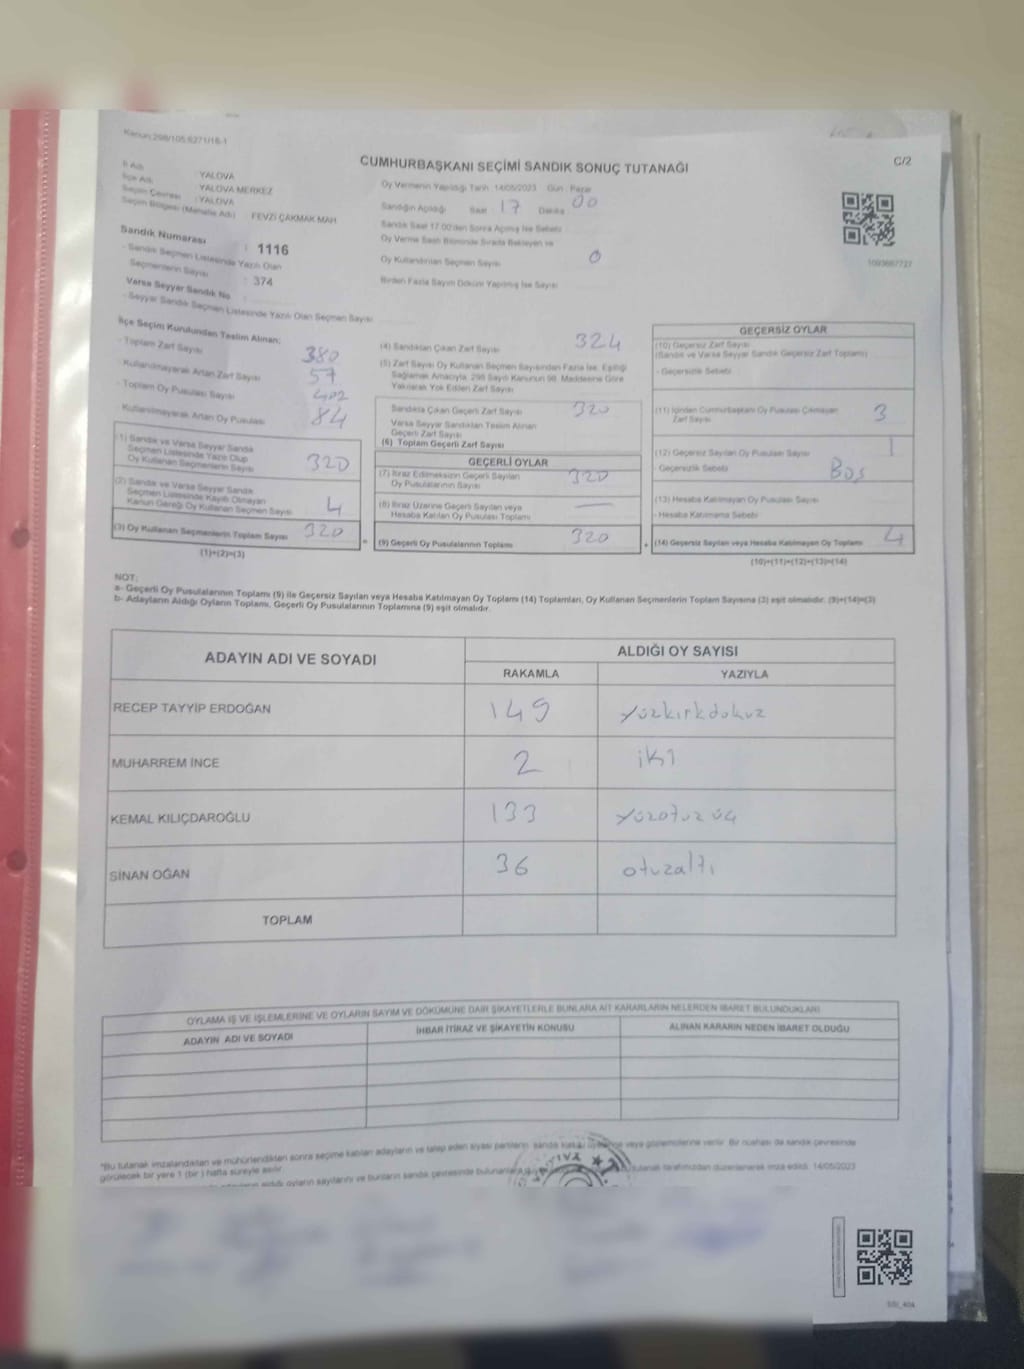 Kanun:298/105;6271/16-1
CUMHURBAŞKANI SEÇİMİ SANDIK SONUÇ TUTANAĞI
C/2
İl Adı : YALOVA
İlçe Adı : YALOVA MERKEZ
Seçim Çevresi : YALOVA
Seçim Bölgesi (Mahalle Adı) : FEVZİ ÇAKMAK MAH
Oy Vermenin Yapıldığı Tarih 14/05/2023 Gün : Pazar
Sandığın Açıldığı Saat : 17 Dakika 00
Sandık Saat 17.00'den Sonra Açılmış İse Sebebi
Oy Verme Saati Bitiminde Sırada Bekleyen ve
Oy Kullandırılan Seçmen Sayısı 0
Birden Fazla Sayım Döküm Yapılmış İse Sayısı
1093687727
Sandık Numarası : 1116
- Sandık Seçmen Listesinde Yazılı Olan
Seçmenlerin Sayısı : 374
Varsa Seyyar Sandık No :
- Seyyar Sandık Seçmen Listesinde Yazılı Olan Seçmen Sayısı
İlçe Seçim Kurulundan Teslim Alınan;
- Toplam Zarf Sayısı 380
- Kullanılmayarak Artan Zarf Sayısı 57
- Toplam Oy Pusulası Sayısı 402
- Kullanılmayarak Artan Oy Pusulası 84
(1) Sandık ve Varsa Seyyar Sandık
Seçmen Listesinde Yazılı Olup
Oy Kullanan Seçmenlerin Sayısı 320
(2) Sandık ve Varsa Seyyar Sandık
Seçmen Listesinde Kayıtlı Olmayan
Kanun Gereği Oy Kullanan Seçmen Sayısı 4
(3) Oy Kullanan Seçmenlerin Toplam Sayısı 320
(1)+(2)=(3)
(4) Sandıktan Çıkan Zarf Sayısı 324
(5) Zarf Sayısı Oy Kullanan Seçmen Sayısından Fazla İse, Eşitliği
Sağlamak Amacıyla, 298 Sayılı Kanunun 98. Maddesine Göre
Yakılarak Yok Edilen Zarf Sayısı
Sandıkta Çıkan Geçerli Zarf Sayısı 320
Varsa Seyyar Sandıktan Teslim Alınan
Geçerli Zarf Sayısı
(6) Toplam Geçerli Zarf Sayısı
GEÇERLİ OYLAR
(7) İtiraz Edilmeksizin Geçerli Sayılan
Oy Pusulalarının Sayısı 320
(8) İtiraz Üzerine Geçerli Sayılan veya
Hesaba Katılan Oy Pusulası Toplamı —
(9) Geçerli Oy Pusulalarının Toplamı 320
GEÇERSİZ OYLAR
(10) Geçersiz Zarf Sayısı
(Sandık ve Varsa Seyyar Sandık Geçersiz Zarf Toplamı)
- Geçersizlik Sebebi
(11) İçinden Cumhurbaşkanı Oy Pusulası Çıkmayan
Zarf Sayısı 3
(12) Geçersiz Sayılan Oy Pusulası Sayısı 1
- Geçersizlik Sebebi Boş
(13) Hesaba Katılmayan Oy Pusulası Sayısı
- Hesaba Katılmama Sebebi
(14) Geçersiz Sayılan veya Hesaba Katılmayan Oy Toplamı 4
(10)+(11)+(12)+(13)=(14)
NOT:
a- Geçerli Oy Pusulalarının Toplamı (9) ile Geçersiz Sayılan veya Hesaba Katılmayan Oy Toplamı (14) Toplamları, Oy Kullanan Seçmenlerin Toplam Sayısına (3) eşit olmalıdır. (9)+(14)=(3)
b- Adayların Aldığı Oyların Toplamı, Geçerli Oy Pusulalarının Toplamına (9) eşit olmalıdır.
ADAYIN ADI VE SOYADI
ALDIĞI OY SAYISI
RAKAMLA YAZIYLA
RECEP TAYYİP ERDOĞAN 149 yüzkırkdokuz
MUHARREM İNCE 2 iki
KEMAL KILIÇDAROĞLU 133 yüzotuzüç
SİNAN OĞAN 36 otuzaltı
TOPLAM
OYLAMA İŞ VE İŞLEMLERİNE VE OYLARIN SAYIM VE DÖKÜMÜNE DAİR ŞİKAYETLERLE BUNLARA AİT KARARLARIN NELERDEN İBARET BULUNDUKLARI
ADAYIN ADI VE SOYADI İHBAR İTİRAZ VE ŞİKAYETİN KONUSU ALINAN KARARIN NEDEN İBARET OLDUĞU
*Bu tutanak imzalandıktan ve mühürlendikten sonra seçime katılan adayların ve talep eden siyasi partilerin sandık kurulu üyelerine veya gözlemcilerine verilir. Bir nüshası da sandık çevresinde
görülecek bir yere 1 (bir) hafta süreyle asılır.
aldığı oyların sayılarını ve bunların sandık çevresinde bulunanlara tutanak tarafımızdan düzenlenerek imza edildi. 14/05/2023